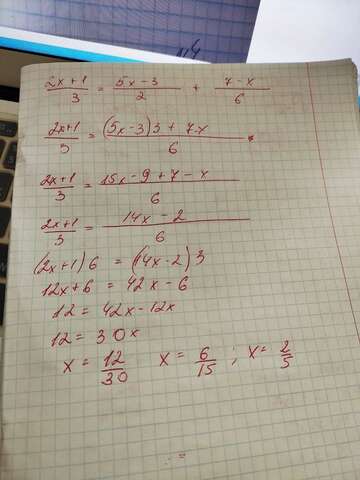 (2x+1)/3 = (5x-3)/2 + (7-x)/6
(2x+1)/3 = ((5x-3)3 + 7-x)/6
(2x+1)/3 = (15x-9+7-x)/6
(2x+1)/3 = (14x-2)/6
(2x+1)6 = (14x-2)3
12x+6 = 42x-6
12 = 42x-12x
12 = 30x
x = 12/30 x = 6/15 ; x = 2/5